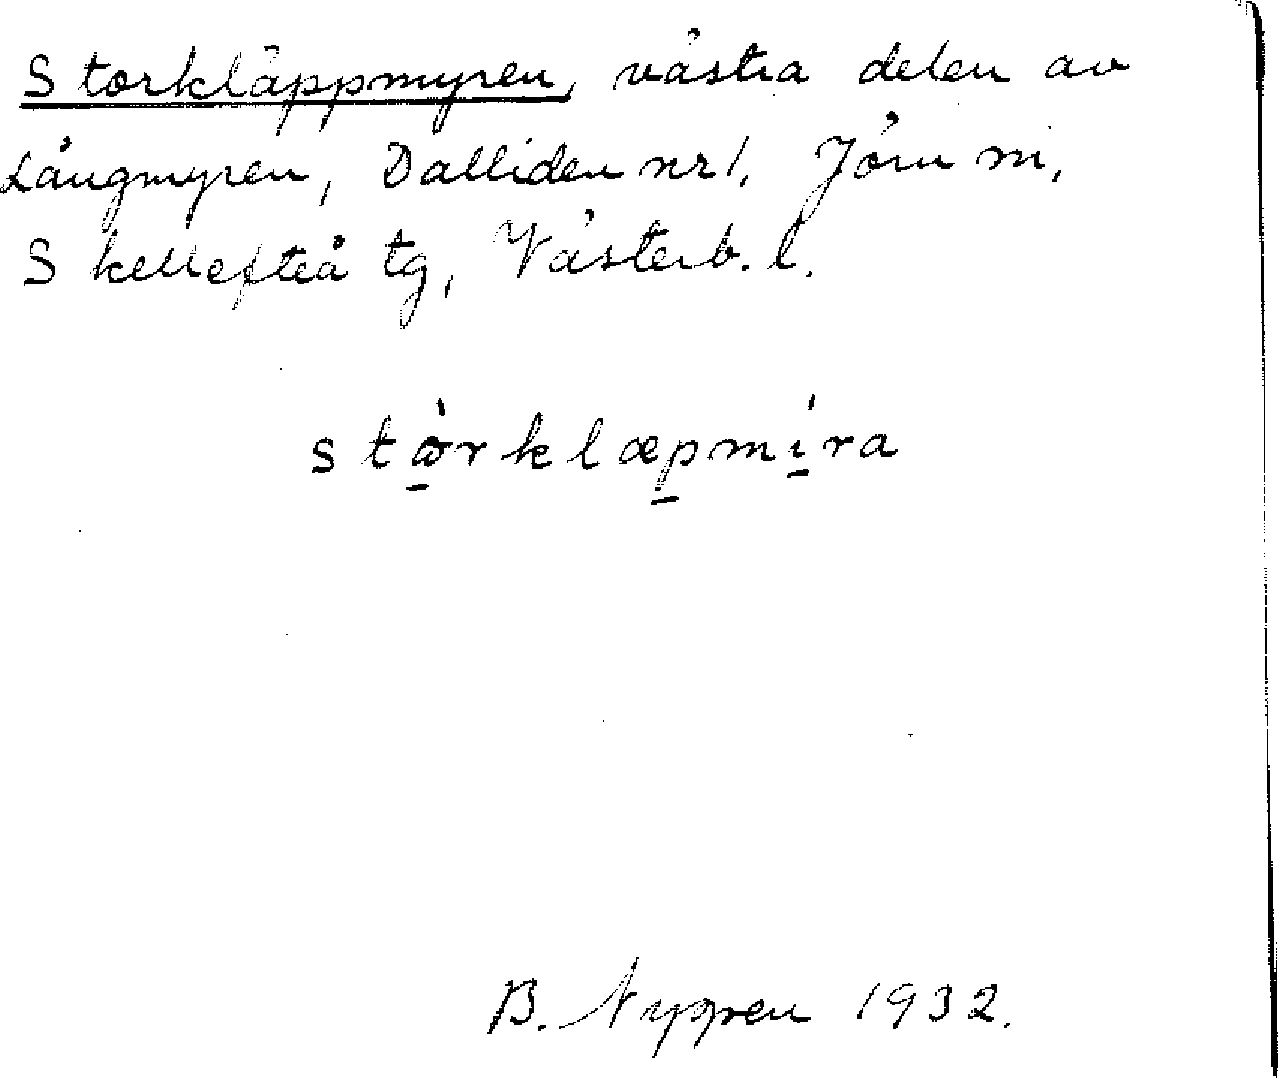 Storkläppmyren, västra delen av
Långmyren, Dalliden nr 1, Jörn sn,
Skellefteå tg, Västerb. l.
stòrklæpmíra
B. Nygren 1932.